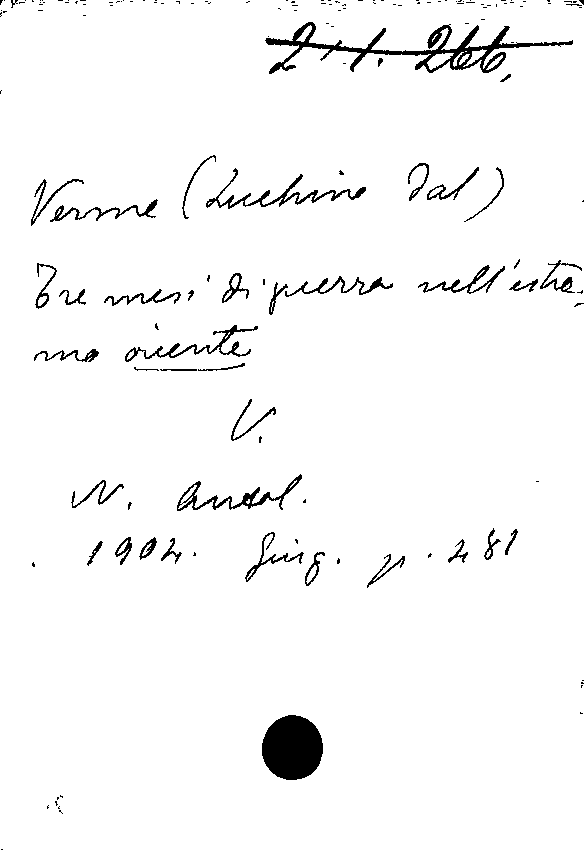 2 1. 266.
Verme (Luchino Dal)
Tre mesi di guerra nell'estre
mo oriente
V.
N. Antol.
1904. Giug. p. 481